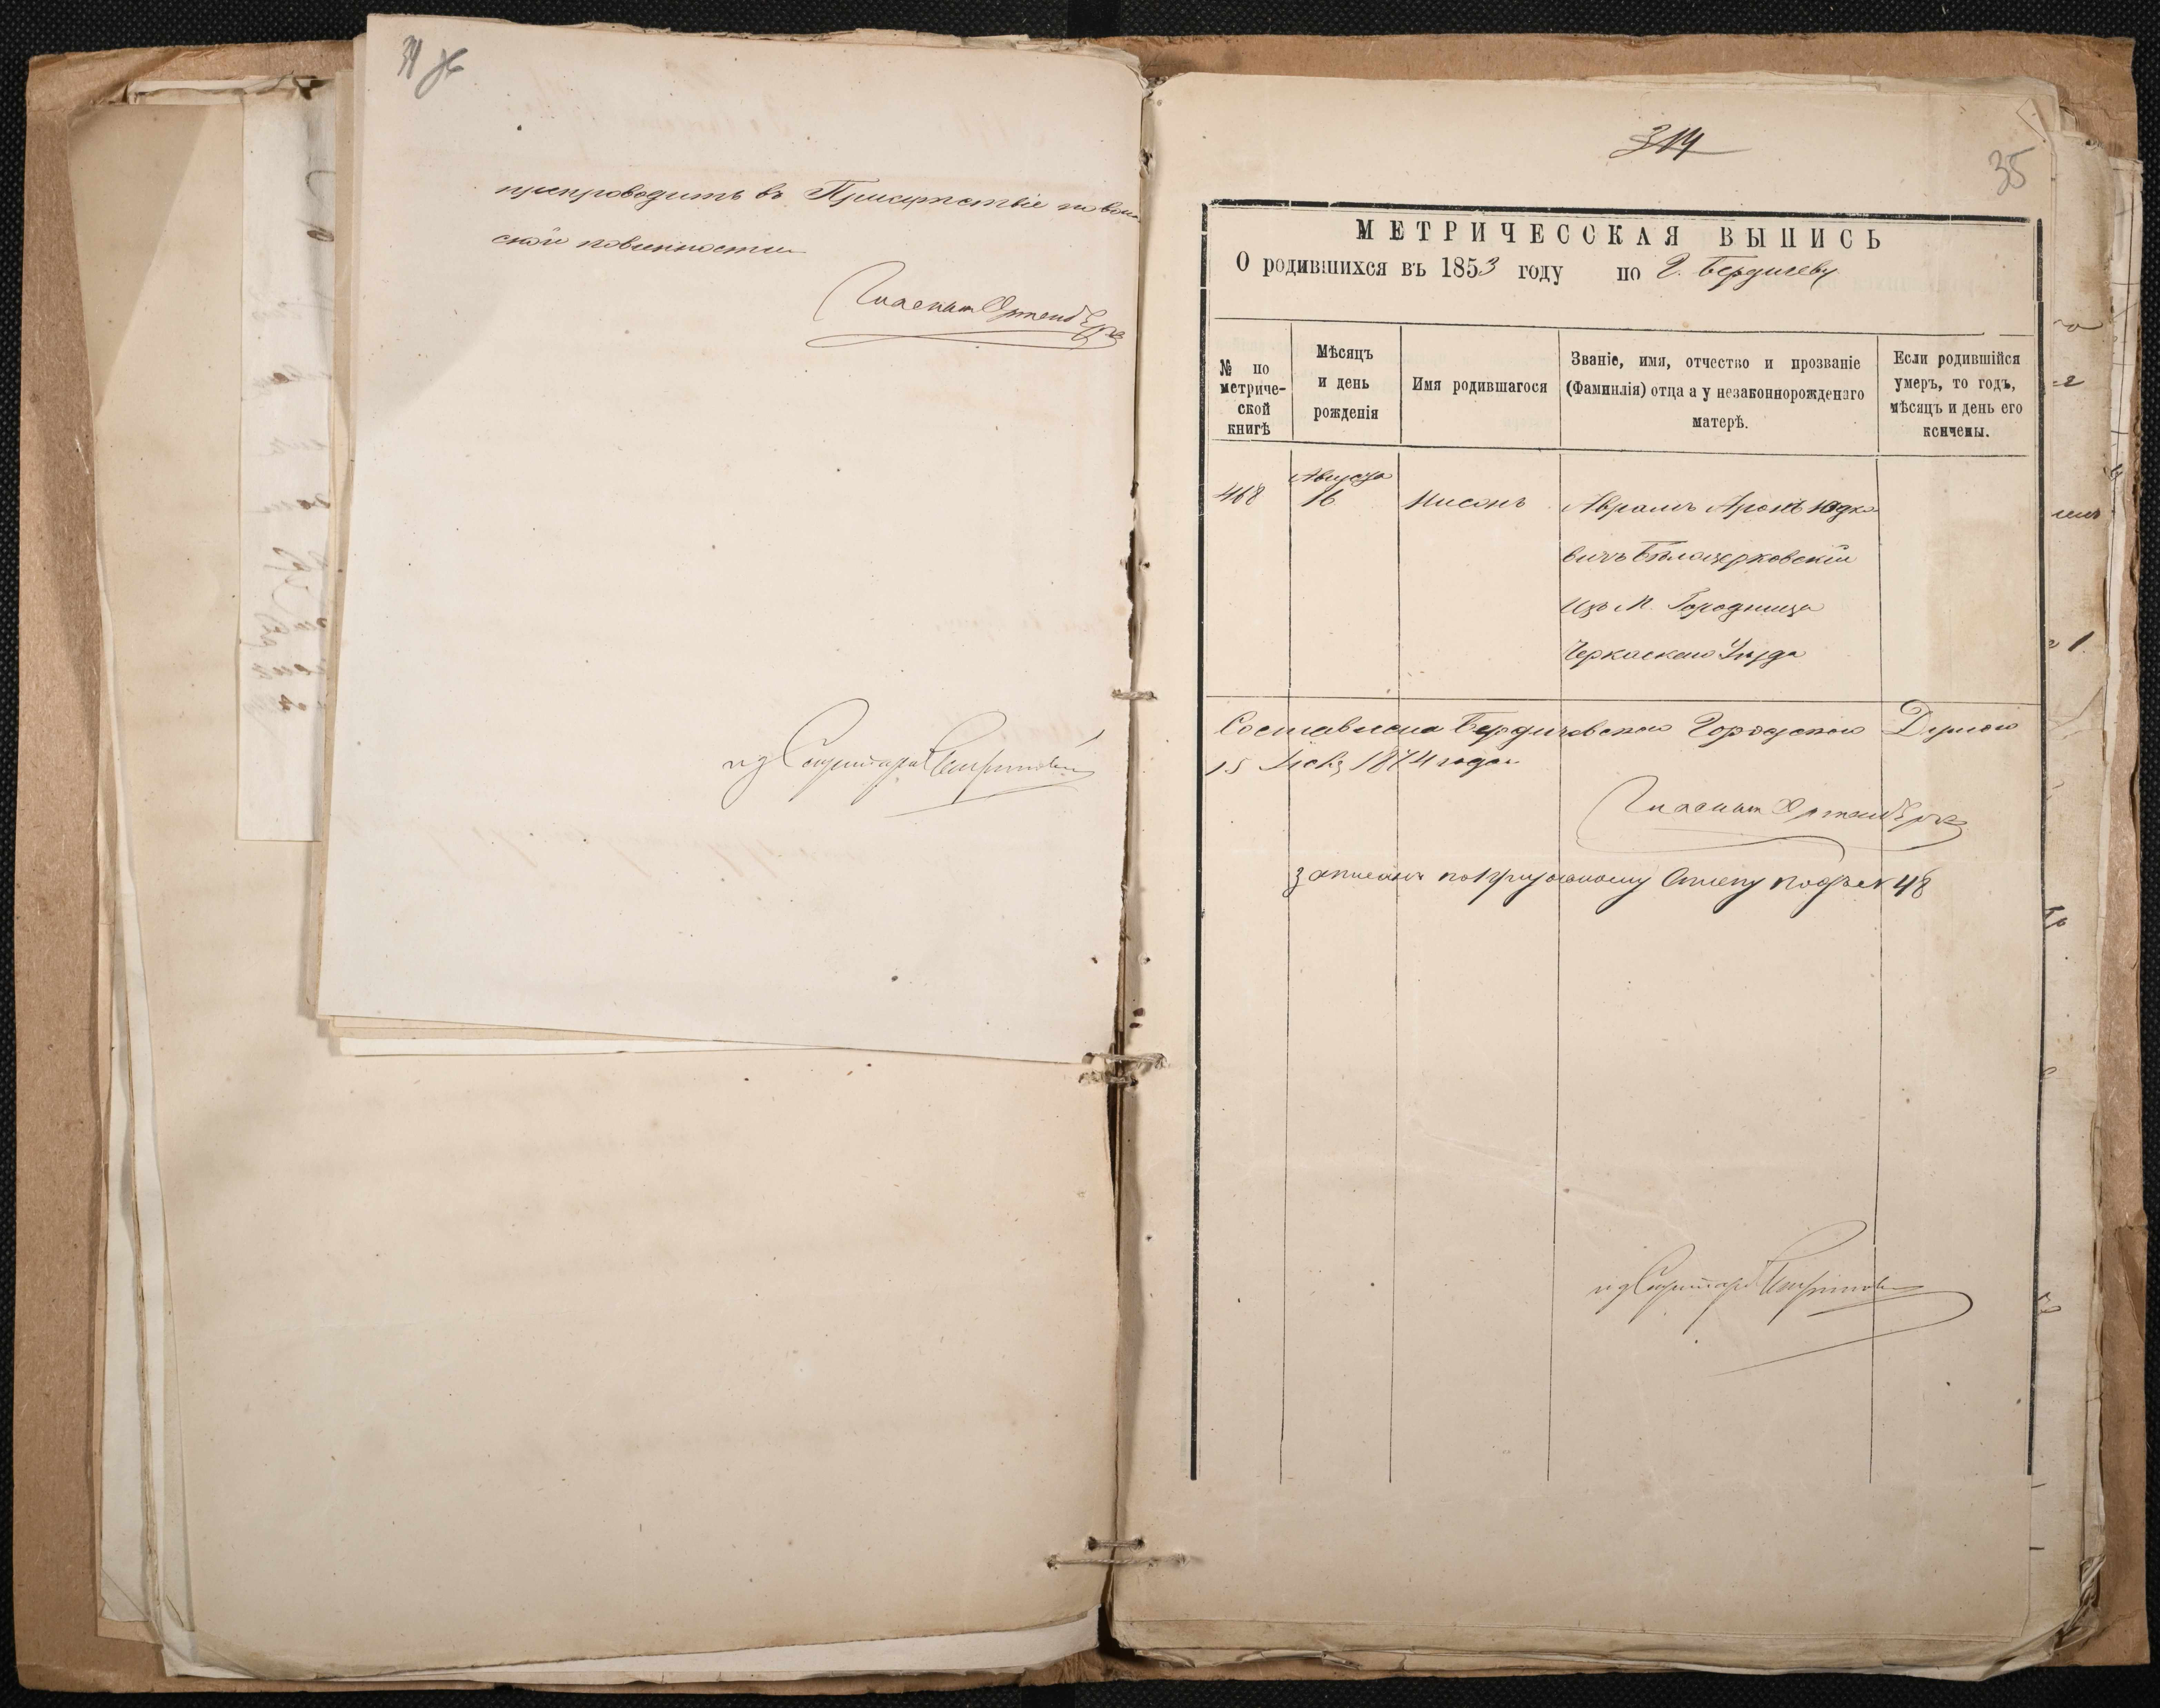 34
препроводить въ Присутствіе по воин
ской повинности
Гласный Ортенбергъ
ид Секретаря
314
35
МЕТРИЧЕССКАЯ ВЫПИСЬ
О родившихся въ 1853 году по Г. Бердичеву
№ по метриче-ской книгѣ
Мѣсяцъ и день рожденія
Имя родившагося
Званіе, имя, отчество и прозваніе (Фамилія) отца а у незаконнорожденаго матерѣ.
Если родившійся умеръ, то годъ, мѣсяцъ и день его кончены.
468
Августа 16
Нисонъ
Аврамъ Аронъ Юдко
вичъ Бѣлоцерковскій
Изъ М. Городища
Черкаскаго Уѣзда
Составлена Бердичевскою Городскою Думою
15 1874 года
Гласный Ортенбергъ
записанъ по призывному списку подъ № 48
ид Секретаря